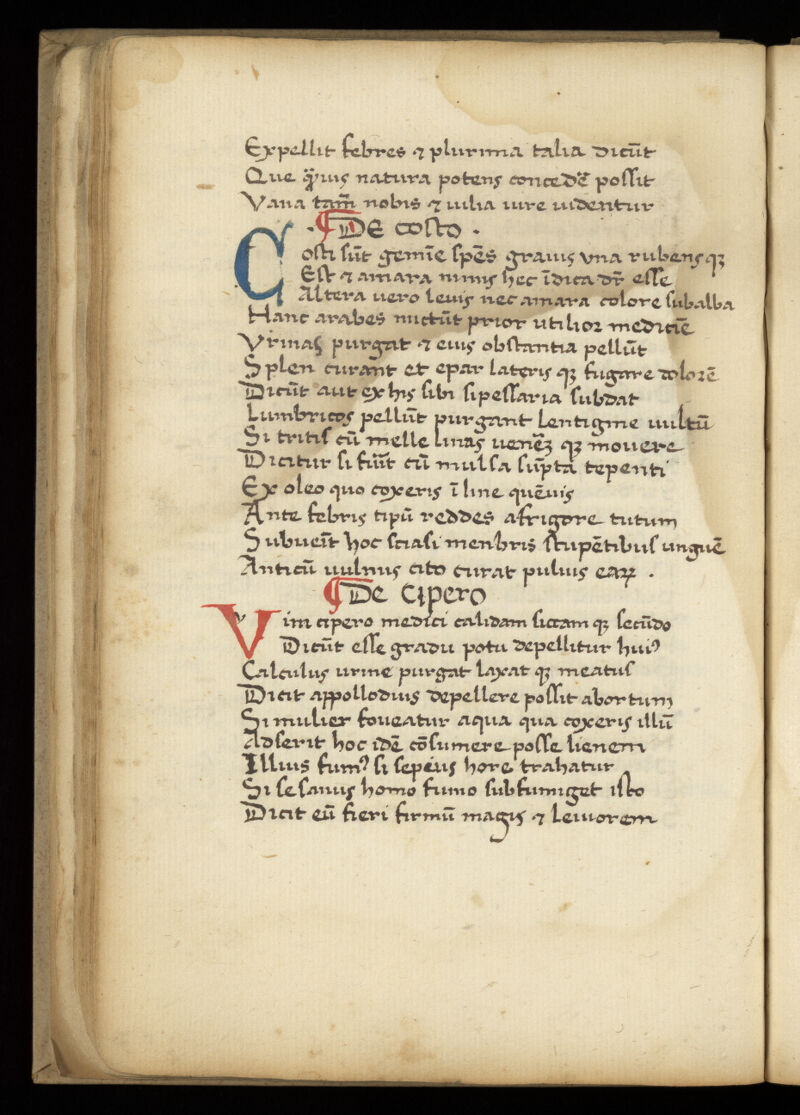 Expellit febres ⁊ plurima talia dicūt
Que q̄ꝫuis natura potens concedē poſſit
Vana tam̄ nobis ⁊ uilia iure uidentur
· ¶ De coſto ·
Coſti ſūt gemīe ſpēs grauis vna rubensqꝫ
Eſt ⁊ amara nimis hec īdica dr̄ eſſe
Altera uero leuis nec amara colore ſubalba
Hanc arabes mictūt prior utilior medicīe
Vrinas purgat ⁊ eius obſtantia pellūt
Splen curant et epar lateris qꝫ fugare dolorē
Dicūt aut ex his ſibi ſipeſſaria ſubdat
Lumbricos pellūt purgant lentigine uultū
Si tritiſ cū melle linas uenēꝫ qꝫ mouere
Dicitur ſi fiūt cū mulſa ſūpta tepenti
Ex oleo quo coxeris ī line quēuis
Ante febris tipū reddes afrigore tutum
Subueīt hoc ſciaſi menbris ſtupētibuſ unguē
Anticū uulnus cito curat puluis eaꝝ .
¶ De Cipero
Vim cipero medici calidam ſiccam qꝫ ſecūdo
Dicūt eſſe gradu potu depellitur huiꝰ
Calculus urine purgat laxat qꝫ meatuſ
Dicit appollodius depellere poſſit abortum
Si mulier foueatur aqua qua coxeris illū
Adſerit hoc idē cōſumere poſſe lienem
Illius fumꝰ ſi ſepeius hore trahatur
Si ſe ſanus homo fumo ſubfumiget iſto
Dicit eū fieri firmū magis ⁊ leuiorem